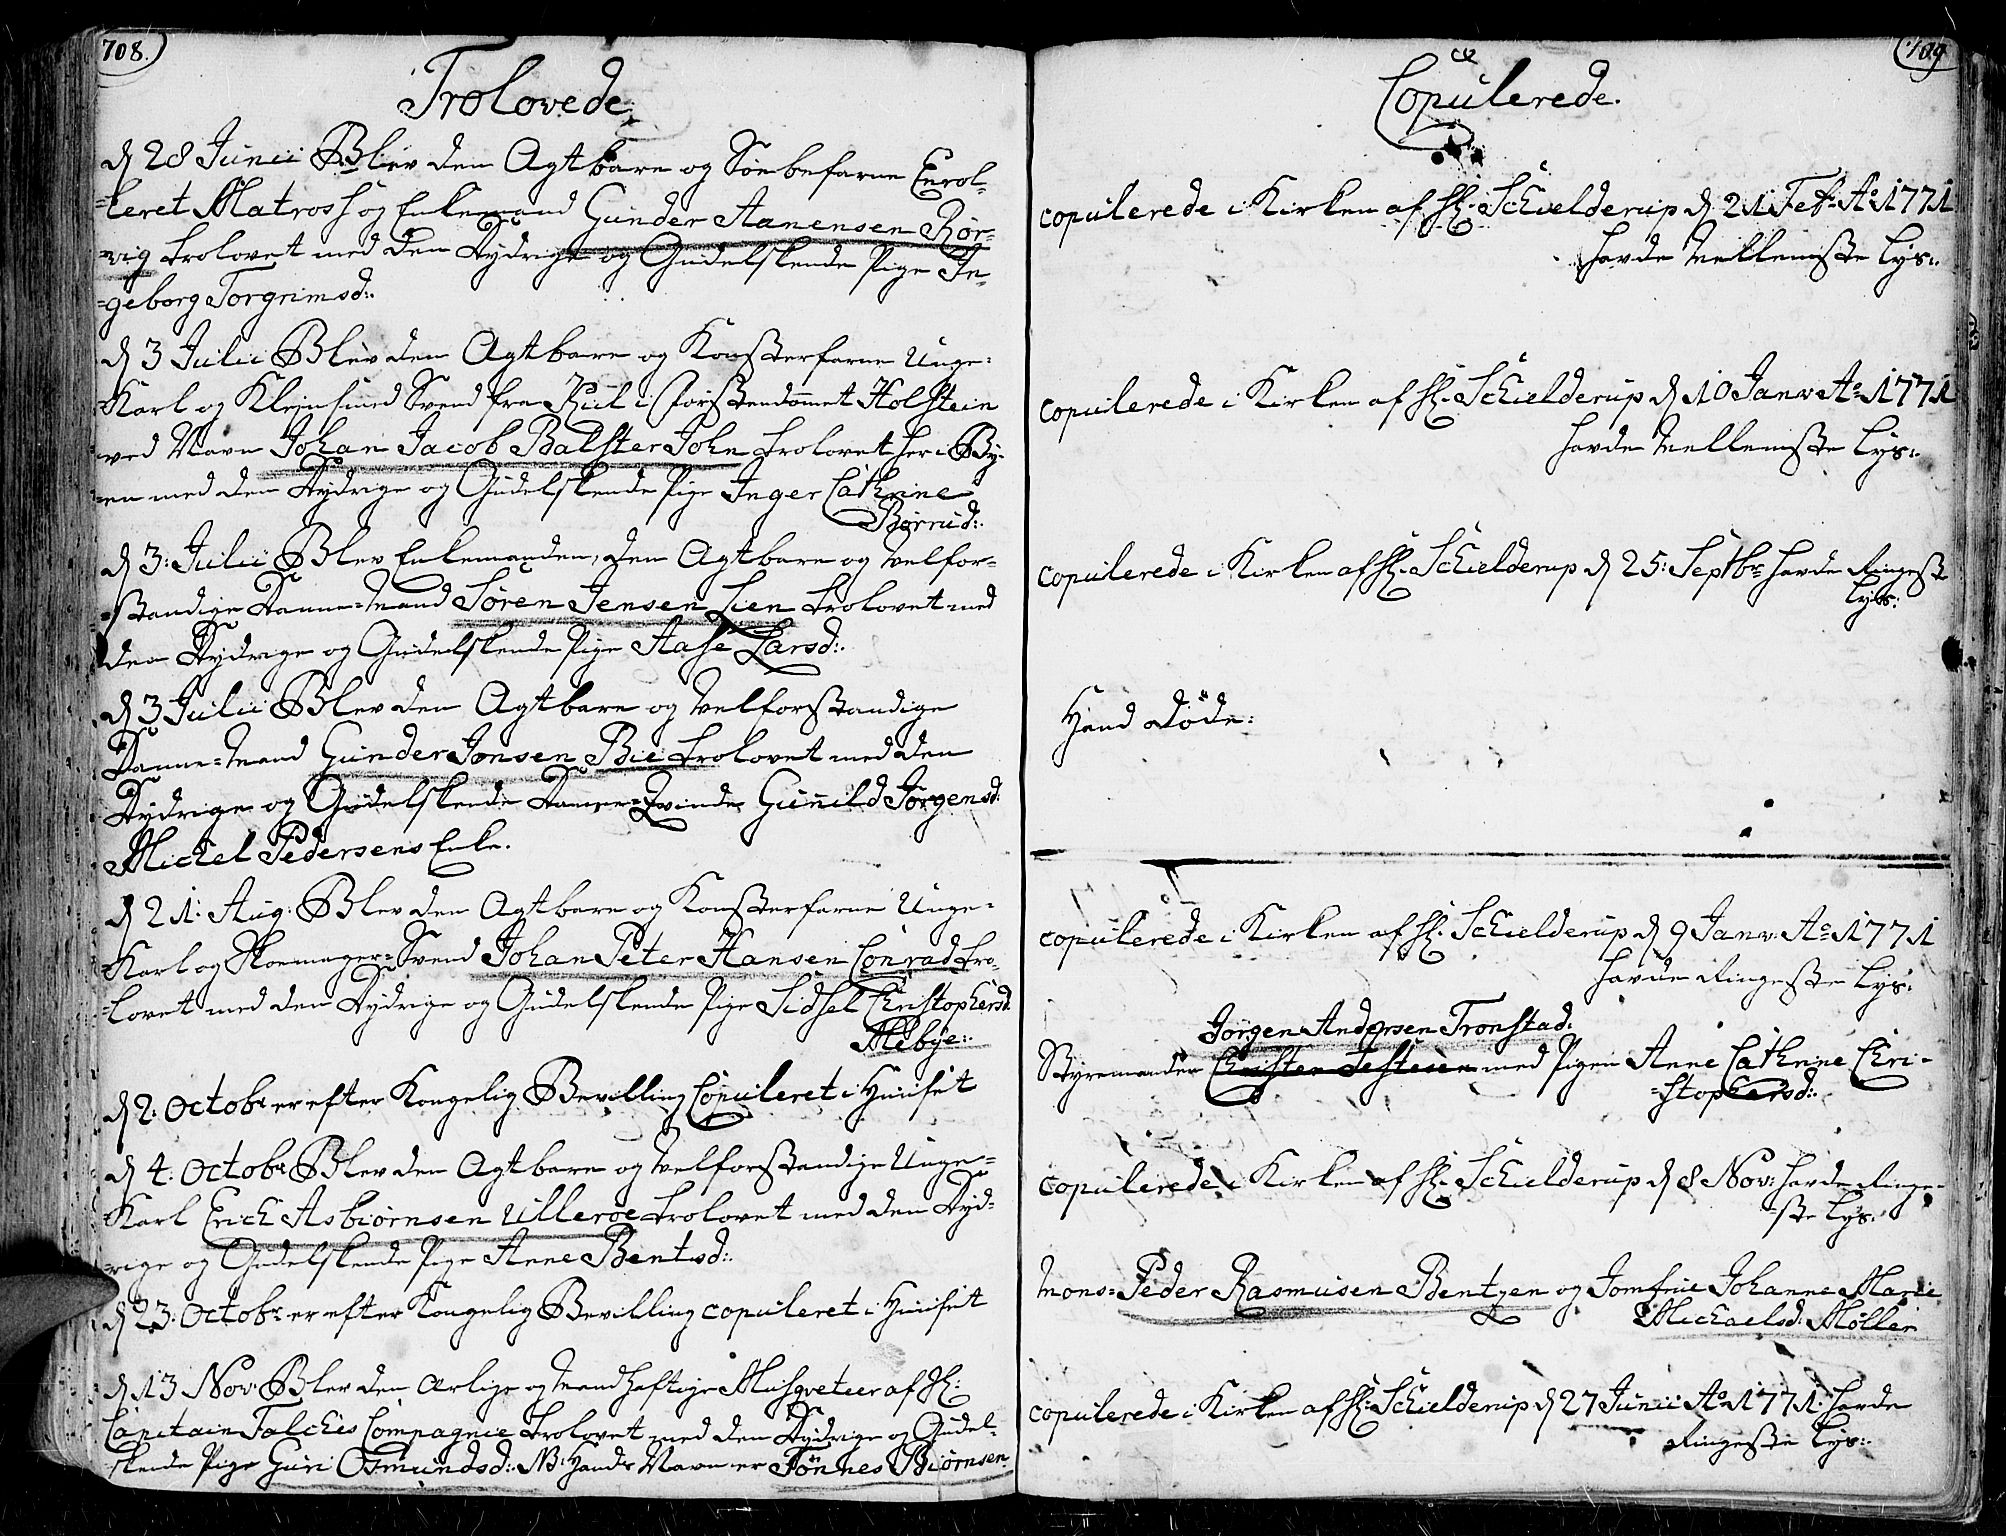 708.
Trolovede
d 28 Junii Blev den Agtbare og Söebefarne Enrol-
=leret Matross og Enkemand Gunder Aanensen Rör-
=vig trolovet med den Dydrige og Gudelskende Pige In-
=geborg Torgrimsd:.
d 3 Julii Blev den Agtbare og Konsterfarne Unge-
Karl og Kleinsmed Svend fra Kiil i Forstendømet Holstein
ved Navn Johan Jacob Balster John trolovet her i By-
=en med den Dydrige og Gudelskende Pige Inger Cathrine
Børrud:.
d 3: Julii Blev Enkemanden, den Agtbare og Velfor-
=standige Danne=Mand Sören Jensen Lien trolovet med
den Dydrige og Gudelskende Pige Aase Larsd:.
d 3 Julii Blev den Agtbare og Velforstandige
Danne=Mand Gunder Jonsen Bie trolovet med den
Dydrige og Gudelskende Danne=Qvinde Gunild Jörgensd:
Michel Pedersens Enke.
d 21: Aug: Blev den Agtbare og Konsterfarne Unge-
Karl og Skoemager=Svend Johan Peter Hansen Conrad tro-
=lovet med den Dydrige og Gudelskende Pige Sidsel Christophersd:
Mebye:.
d 2: Octobr er efter Kongelig Bevilling Copuleret i Huuset
d 4: Octobr Blev den Agtbare og Velforstandige Unge-
Karl Erich Asbiørnsen Ulleröe trolovet med den Dyd-
=rige og Gudelskende Pige Anne Bentsd:.
d 23: Octobr er efter Kongelig Bevilling copuleret i Huuset
d 13 Nov: Blev den Ærlige og Mandhaftige Musqveteer af Hr:
Capitain Falches Compagnie trolovet med den Dydrige og Gudel-
skende Pige Guri Osmundsd:. NB: Hands Navn er Tönnes Biörnsen
709
Copulerede.
copulerede i Kirken af Hr. Schielderup d 21 Feb: Ao 1771
havde Mellemste Lys:.
copulerede i Kirken af Hr. Schielderup d 10 Janv: Ao 1771
havde Mellemste Lys:.
copulerede i Kirken af Hr. Schielderup d 25: Septbr havde Ringeste
Lys:
Hand Döde:
copulerede i Kirken af Hr. Schielderup d 9 Janv: Ao 1771
havde Ringeste Lys:
Jörgen Andersen Tronstad.
Styremanden Christen med Pigen Anne Cathrine Chri-
=stophersd:.
copulerede i Kirken af Hr. Schielderup d 8 Nov: havde Ringe-
=ste Lys:
Mons= Peder Rasmusen Bentzen og Jomfrue Johanne Marie
Michaelsd: Møller
copulerede i Kirken af Hr. Schielderup d 27 Junii Ao 1771. havde
Ringeste Lys:.